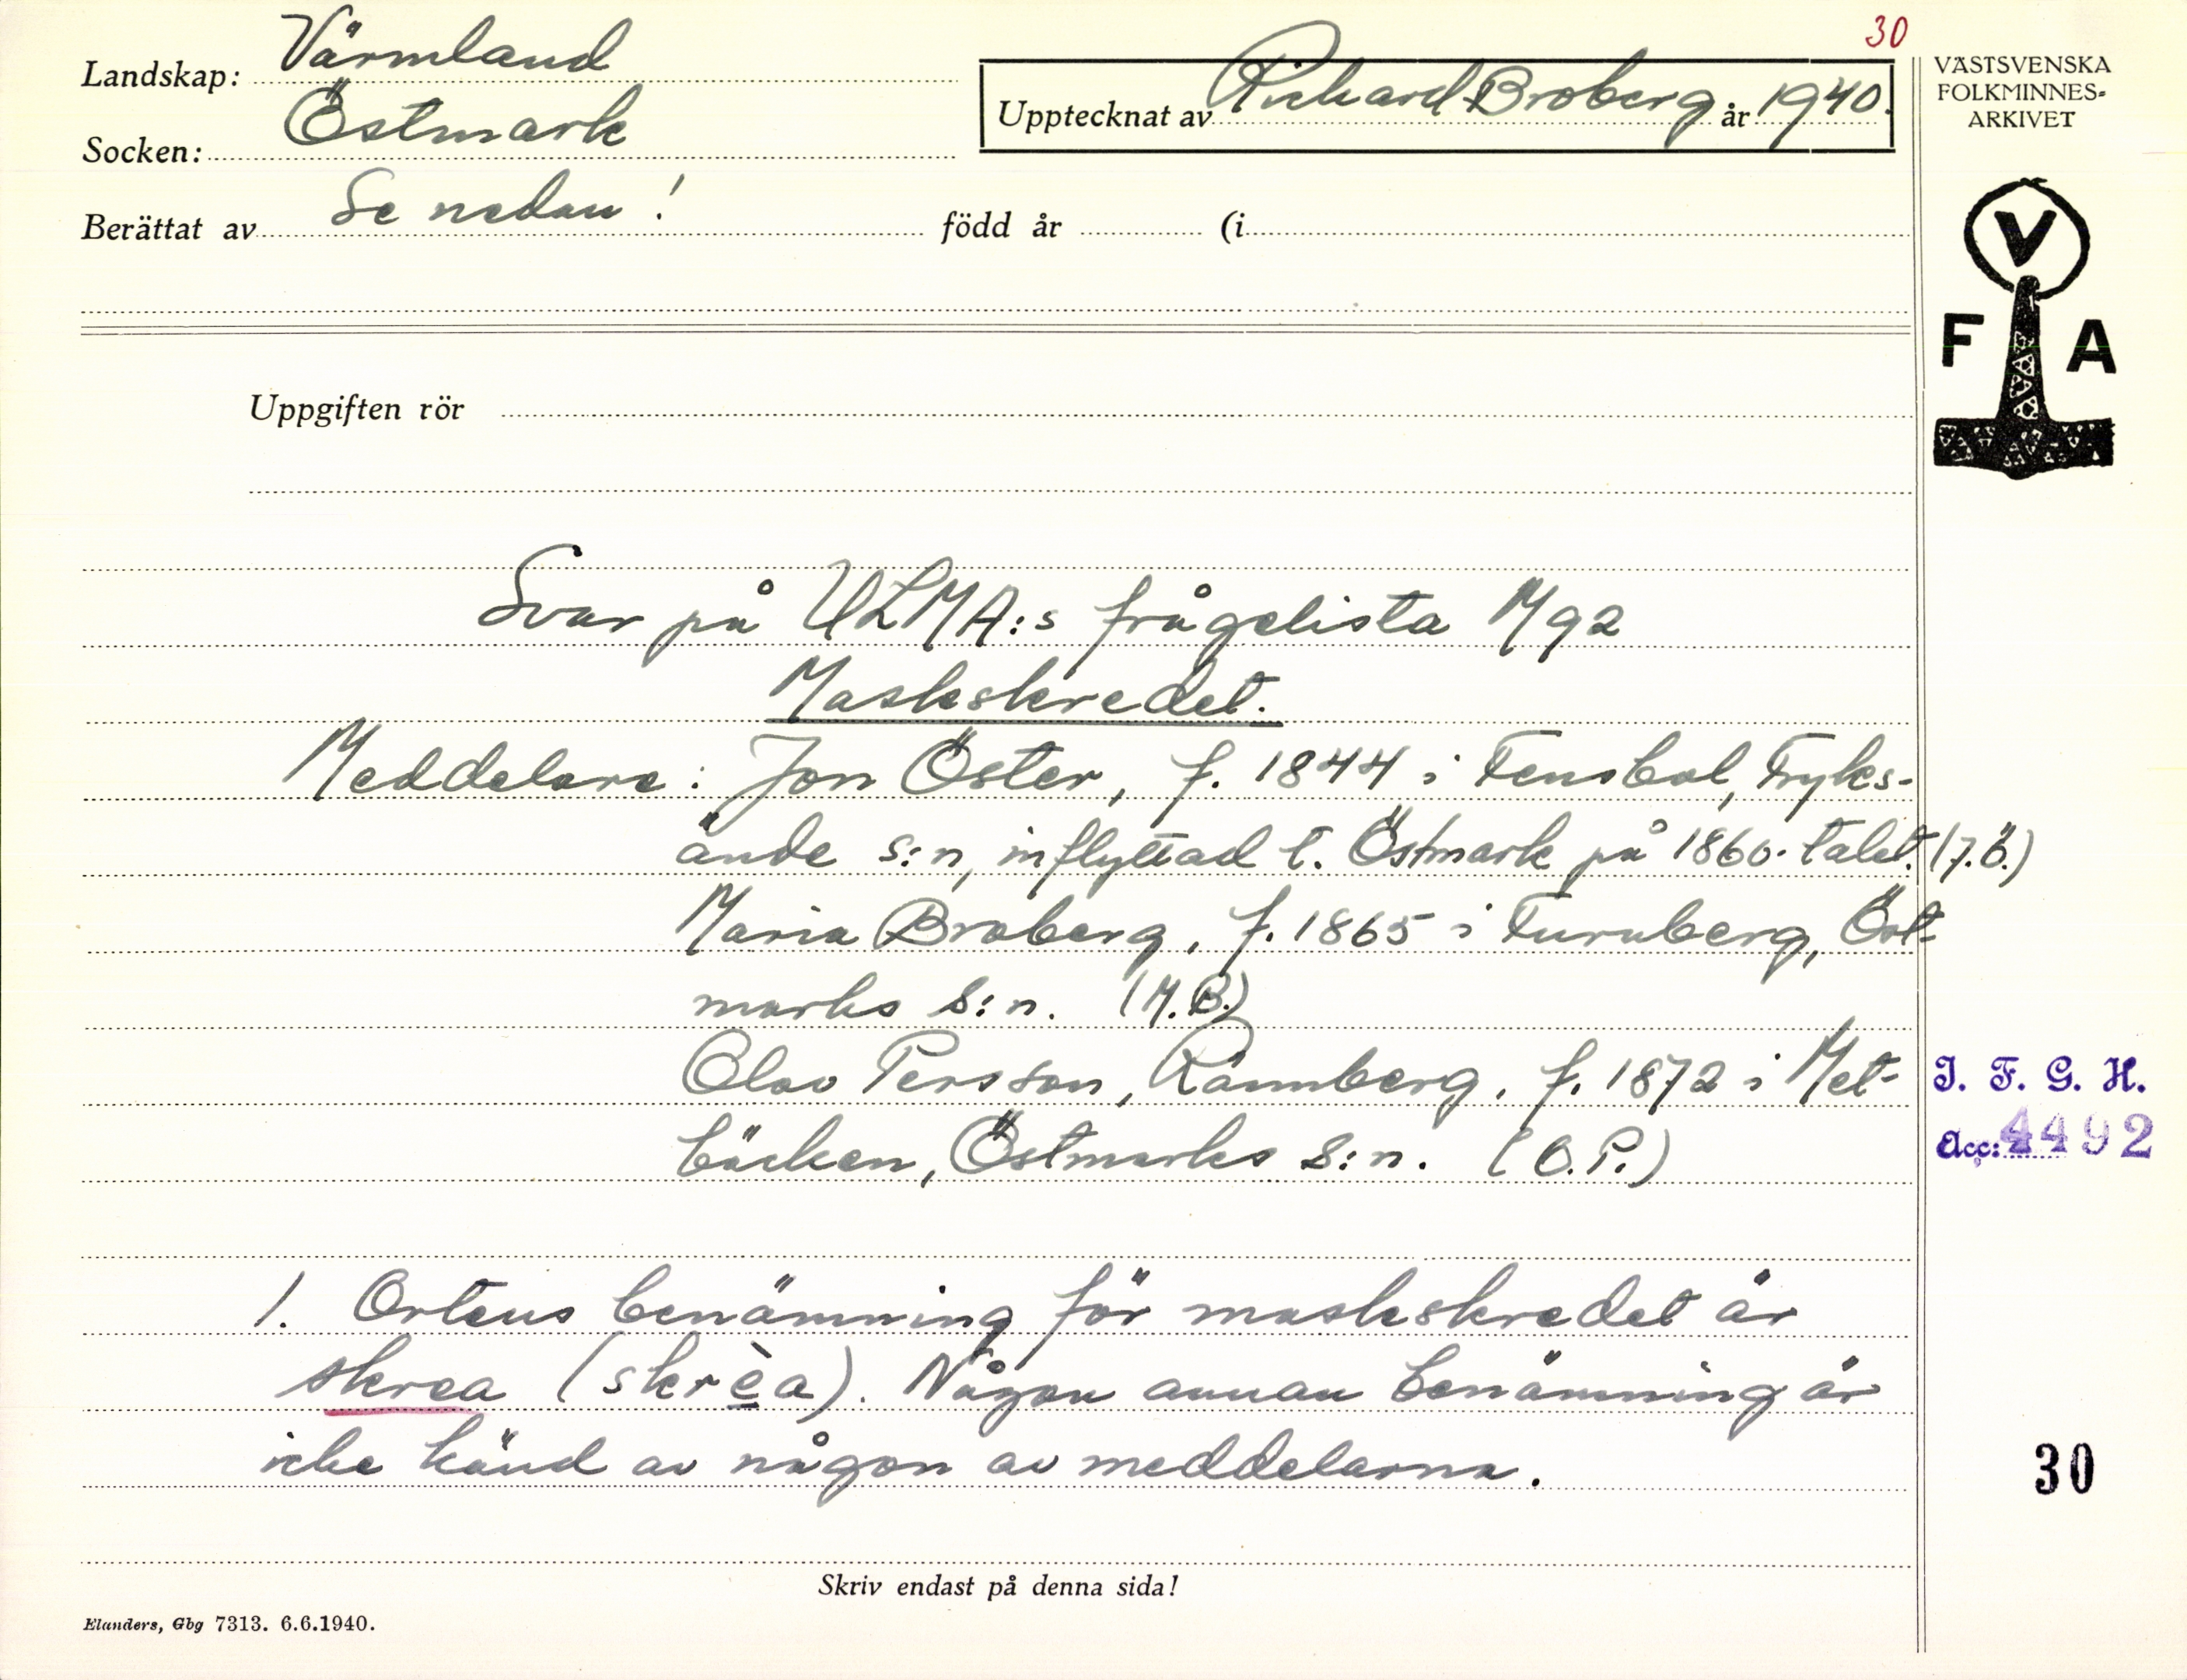 30
Landskap: Värmland
Socken: Östmark
Berättat av Se nedan! född år (i
Upptecknat av Richard Broberg år 1940.
VÄSTSVENSKA
FOLKMINNES-
ARKIVET
V
F A
Uppgiften rör
Svar på ULMA:s frågelista M92
Maskskredet.
Meddelare: Jon Öster, f. 1844 i Tensbol, Fryks-
ände s:n, inflyttad t. Östmark på 1860-talet. (J.Ö.)
Maria Broberg, f. 1865 i Furuberg, Öst-
marks s:n. (M.B.)
Olov Persson, Rännberg, f. 1872 i Met-
bäcken, Östmarks s:n. (O.P.)
I. F. G. H.
Acc: 4492
1. Ortens benämning för maskskredet är
skrea (skrèa). Någon annan benämning är
icke känd av någon av meddelarna.
30
Skriv endast på denna sida!
Elanders, Gbg 7313. 6.6.1940.